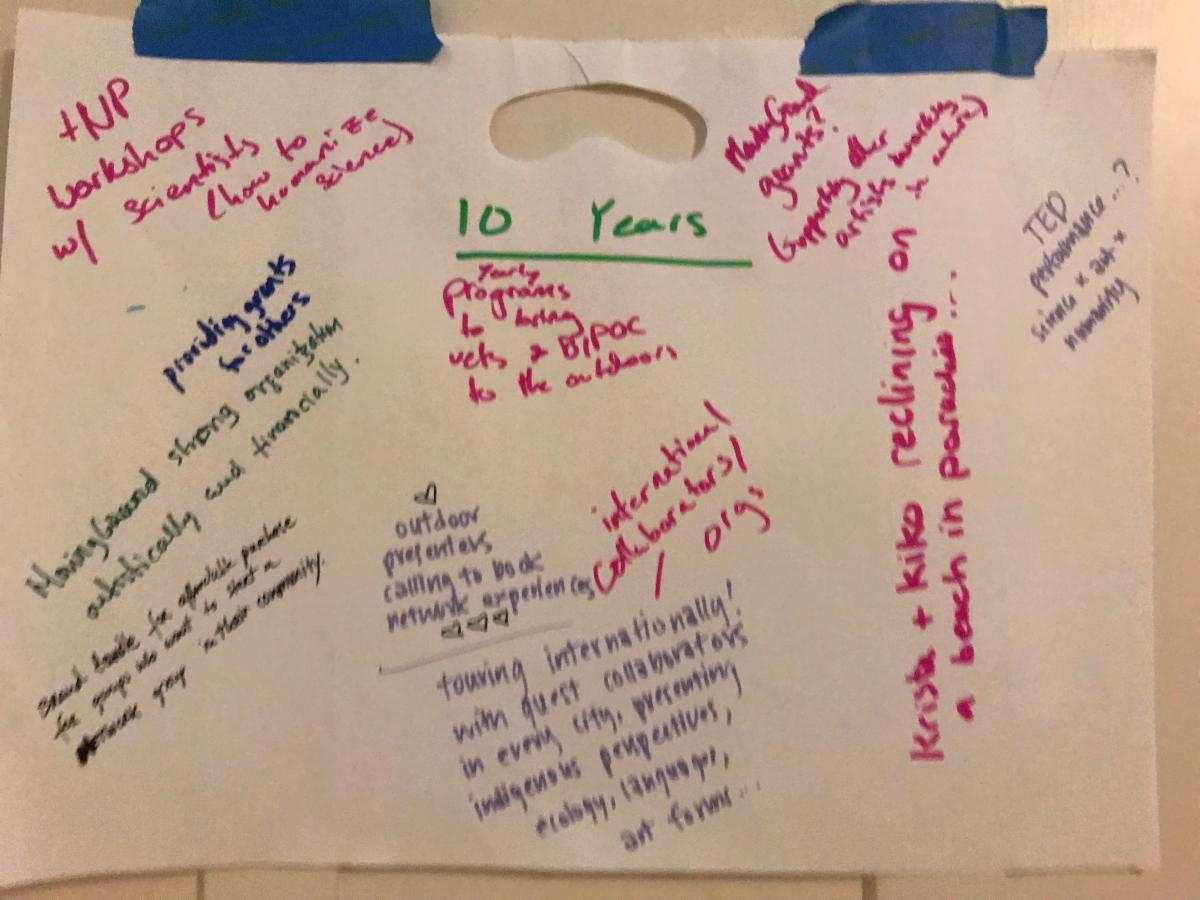 +NP
workshops
w/ scientists
(how to
humanize
science)
grants?
(supporting other
artists working
in nature)
TED
performance...?
science x art x
humanity
10 Years
Yearly
programs
to bring
vets & BIPOC
to the outdoors
providing grants
for others
MovingGround strong organization
artistically and financially.
for affordable purchase
for groups who want to start a
group in their community.
outdoor
presenters
calling to book
network experiences
international
collaborators/
/ orgs
touring internationally!
with guest collaborators
in every city, presenting
indigenous perspectives,
ecology, language,
art forms...
Krista + Kiko reclining on
a beach in paradise...